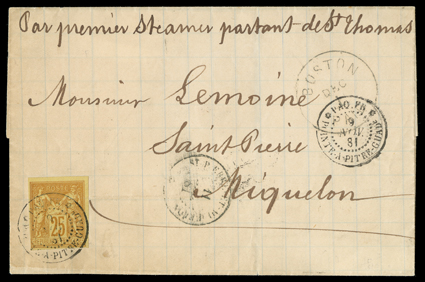 Par premier Steamer partant de St Thomas
BOSTON
DEC
Monsieur Lemoine
PAQ. FR.
19
NOV.
81
POINTE-A-PITRE-GUADE
Saint Pierre
ST PIERRE
Miquelon
25